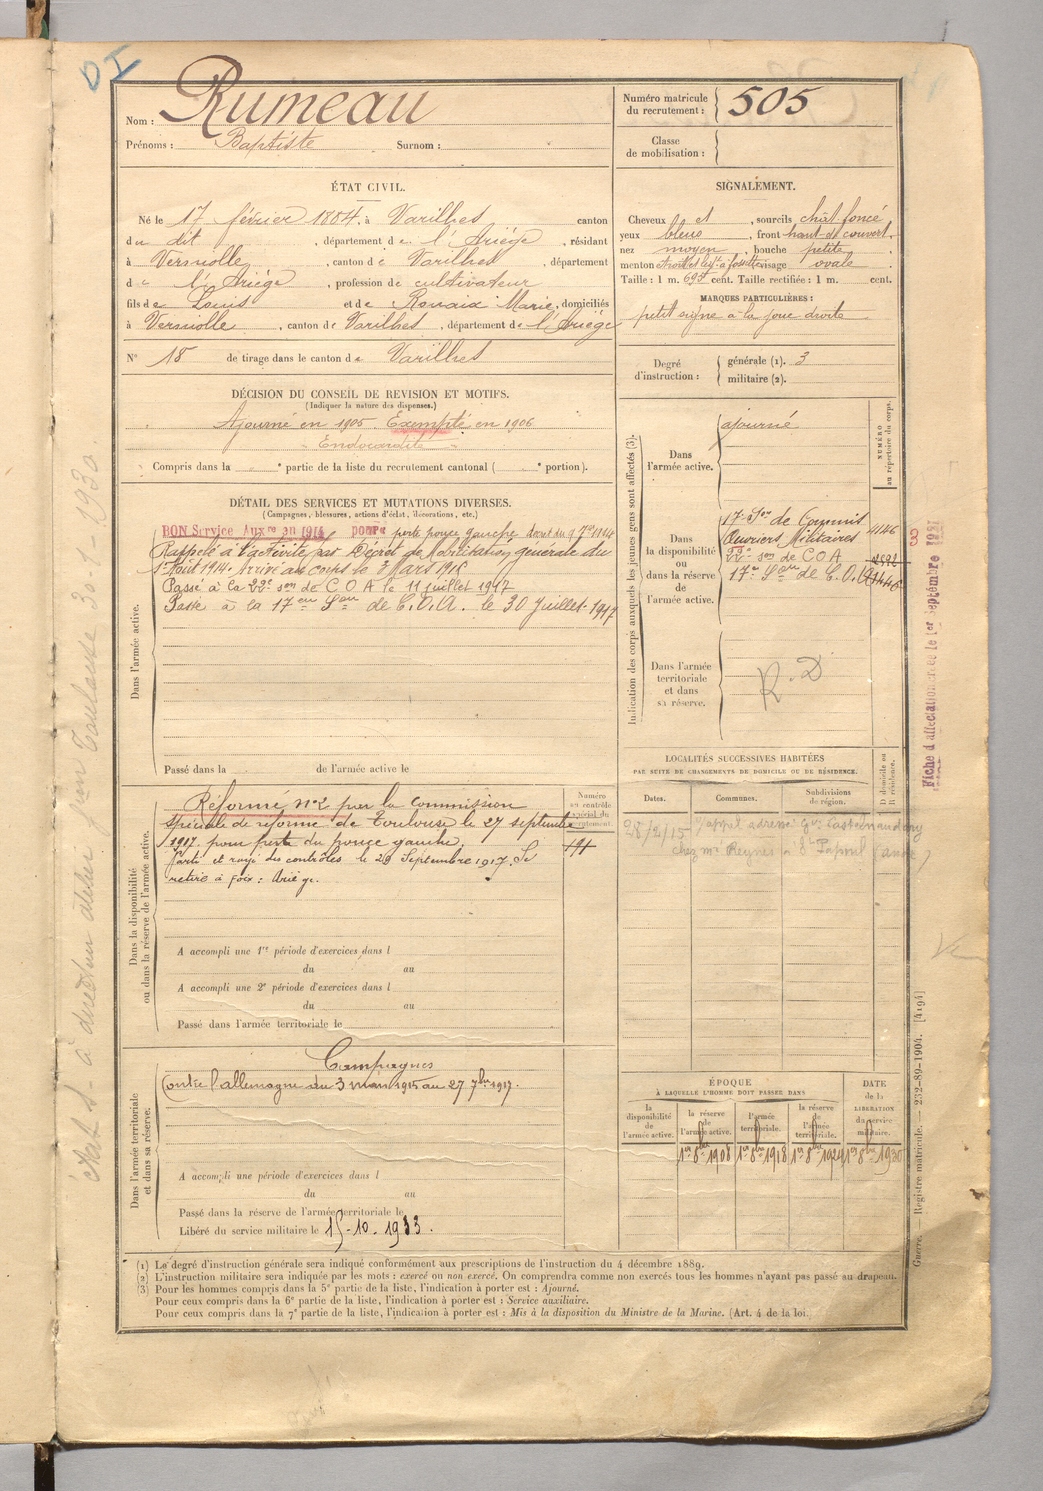 DI
Nom : Rumeau
Prénoms : Baptiste Surnom :
Numéro matricule du recrutement : 505
Classe de mobilisation :
ÉTAT CIVIL.
Né le 17 février 1884, à Varilhes canton
du dit, département de l'Ariège, résidant
à Verniolle, canton de Varilhes, département
de l'Ariège, profession de cultivateur
fils de Louis et de Rouaix Marie, domiciliés
à Verniolle, canton de Varilhes, département de l'Ariège
N° 18 de tirage dans le canton de Varilhes
SIGNALEMENT.
Cheveux et, sourcils chât foncé
yeux bleus, front haut et couvert.
nez moyen, bouche petite,
menton à fossette visage ovale
Taille : 1 m. 695 cent. Taille rectifiée : 1 m. cent.
MARQUES PARTICULIÈRES :
petit signe à la joue droite
Degré d'instruction : générale (1). 3
militaire (2).
DÉCISION DU CONSEIL DE REVISION ET MOTIFS.
(Indiquer la nature des dispenses.)
Ajourné en 1905. Exempté en 1906
Endocardite
Compris dans la e partie de la liste du recrutement cantonal ( e portion).
DÉTAIL DES SERVICES ET MUTATIONS DIVERSES.
(Campagnes, blessures, actions d'éclat, décorations, etc.)
Dans l'armée active.
BON Service Auxre an 1914 pour perte pouce gauche décret du 9 7bre 1914
Rappelé à l'activité par Décret de Mobilisation générale du
1er Août 1914. Arrivé au corps le 3 Mars 1915
Passé à la 22e son de C O A le 11 juillet 1917
Passé à la 17eme Son de C.O.A. le 30 Juillet 1917
Passé dans la de l'armée active le
Indication des corps auxquels les jeunes gens sont affectés (3).
NUMÉRO au répertoire du corps.
Dans l'armée active. ajourné
Dans la disponibilité ou dans la réserve de l'armée active.
17e Son de Commis
Ouvriers Militaires 4146
22e son de COA
17e Son de C.O.A
Dans l'armée territoriale et dans sa réserve.
R.D
Fiche d'affectation créée le 1er Septembre
LOCALITÉS SUCCESSIVES HABITÉES
PAR SUITE DE CHANGEMENTS DE DOMICILE OU DE RÉSIDENCE.
Dates. Communes. Subdivisions de région. D domicile ou R résidence.
28/2/15 appel adressé Gie Castelnaudary
chez Mr Reynes à St Papoul (Aude)
Dans la disponibilité ou dans la réserve de l'armée active.
Numéro au contrôle spécial du recrutement.
Réformé n°2 par la Commission
spéciale de réforme de Toulouse le 27 septembre
1917 pour perte du pouce gauche.
Parti et rayé des contrôles le 29 Septembre 1917. Se
retire à Foix : Ariège.
A accompli une 1re période d'exercices dans l
du au
A accompli une 2e période d'exercices dans l
du au
Passé dans l'armée territoriale le
Dans l'armée territoriale et dans sa réserve.
Campagnes
Contre l'allemagne du 3 mars 1915 au 27 7bre 1917.
A accompli une période d'exercices dans l
du au
Passé dans la réserve de l'armée territoriale le
Libéré du service militaire le 15-10-1933.
ÉPOQUE
À LAQUELLE L'HOMME DOIT PASSER DANS
la disponibilité de l'armée active.
la réserve de l'armée active.
l'armée territoriale.
la réserve de l'armée territoriale.
DATE de la LIBÉRATION du service militaire.
1er 8bre 1908 1er 8bre 1918 1er 8bre 1924 1er 8bre 1930
Guerre. — Registre matricule. — 232-89-1904. [4194]
(1) Le degré d'instruction générale sera indiqué conformément aux prescriptions de l'instruction du 4 décembre 1889.
(2) L'instruction militaire sera indiquée par les mots : exercé ou non exercé. On comprendra comme non exercés tous les hommes n'ayant pas passé au drapeau.
(3) Pour les hommes compris dans la 5e partie de la liste, l'indication à porter est : Ajourné.
Pour ceux compris dans la 6e partie de la liste, l'indication à porter est : Service auxiliaire.
Pour ceux compris dans la 7e partie de la liste, l'indication à porter est : Mis à la disposition du Ministre de la Marine. (Art. 4 de la loi.